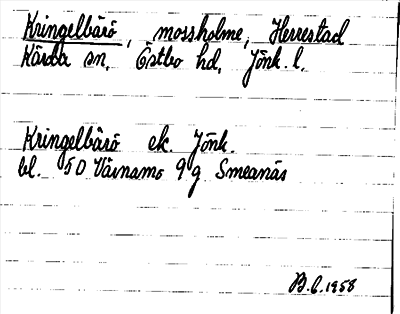 Kringelbärö, mossholme, Herrestad
Kärda sn, Östbo hd, Jönk. l.
Kringelbärö ek. Jönk.
bl. 5D Värnamo 9g Smeanäs
B.L. 1958